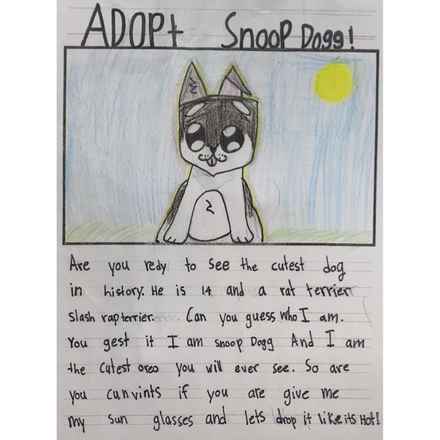 ADOPt Snoop Dogg!
Are you redy to see the cutest dog
in history. He is 14 and a rat terrier
slash rapterrier. Can you guess who I am.
You gest it I am snoop Dogg And I am
the cutest oreo you will ever see. So are
you cunvints if you are give me
my sun glasses and lets drop it like its Hot!